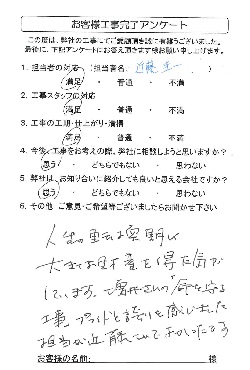 お客様工事完了アンケート
この度は、弊社の工事にてご愛顧頂き誠に有難うございました。
最後に、下記アンケートにお答え頂きます様お願い申し上げます。
1. 担当者の対応 (担当者名: 近藤
満足 ・ 普通 ・ 不満
2. 工事スタッフの対応
満足 ・ 普通 ・ 不満
3. 工事の工期・仕上がり・清掃
満足 ・ 普通 ・ 不満
4. 今後、工事をお考えの際、弊社に相談しようと思いますか?
思う ・ どちらでもない ・ 思わない
5. 弊社は、お知り合いに紹介しても良いと思える会社ですか?
思う ・ どちらでもない ・ 思わない
6. その他 ご意見・ご希望等ございましたらお聞かせ下さい
人生の
大きな を得た気が
しています。 を守る
工事 プライドと誇りを感じました
担当が近藤さんでよかったです
お客様の名前: 様